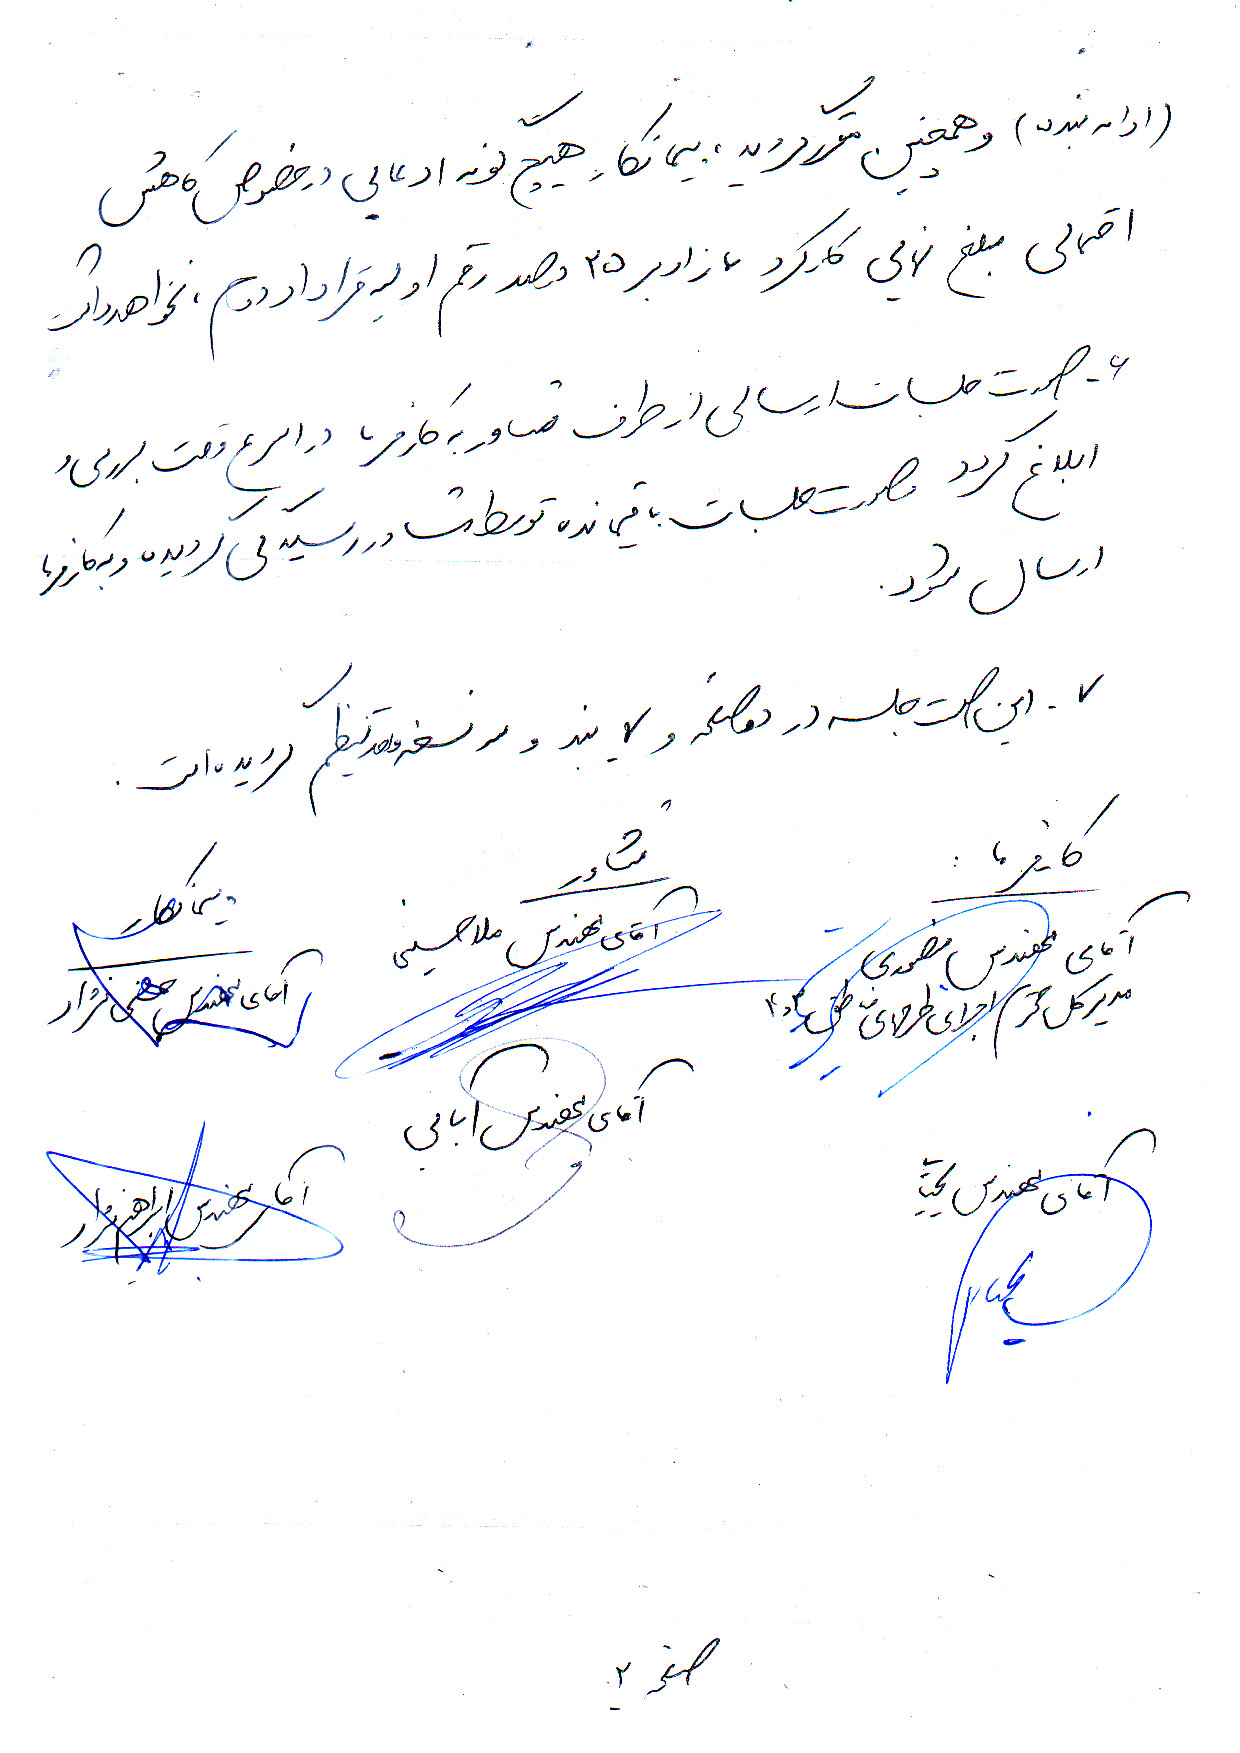 (ادامه بند ۵) و همچنین مقرر گردید، پیمانکار هیچگونه ادعایی در خصوص کاهش
احتمالی مبلغ نهایی کارکرد مازاد بر ۲۵ درصد رقم اولیه قرارداد دوم، نخواهد داشت
۶- صورت جلسات ارسالی از طرف مشاور به کارفرما در اسرع وقت بررسی و
ابلاغ گردد و صورت جلسات باقیمانده توسط مشاور رسیدگی گردیده و به کارفرما
ارسال شود.
۷- این صورت جلسه در دو صفحه و ۷ بند و سه نسخه واحد تنظیم گردیده است.
کارفرما:
مشاور
پیمانکار
آقای مهندس منصوری
آقای مهندس ملاحسینی
آقای مهندس نژاد
مدیر کل محترم اجرای طرحهای مناطق ۳ و ۴
آقای مهندس آبایی
آقای مهندس یحیی
آقای مهندس ابراهیم نژاد
صفحه ۲